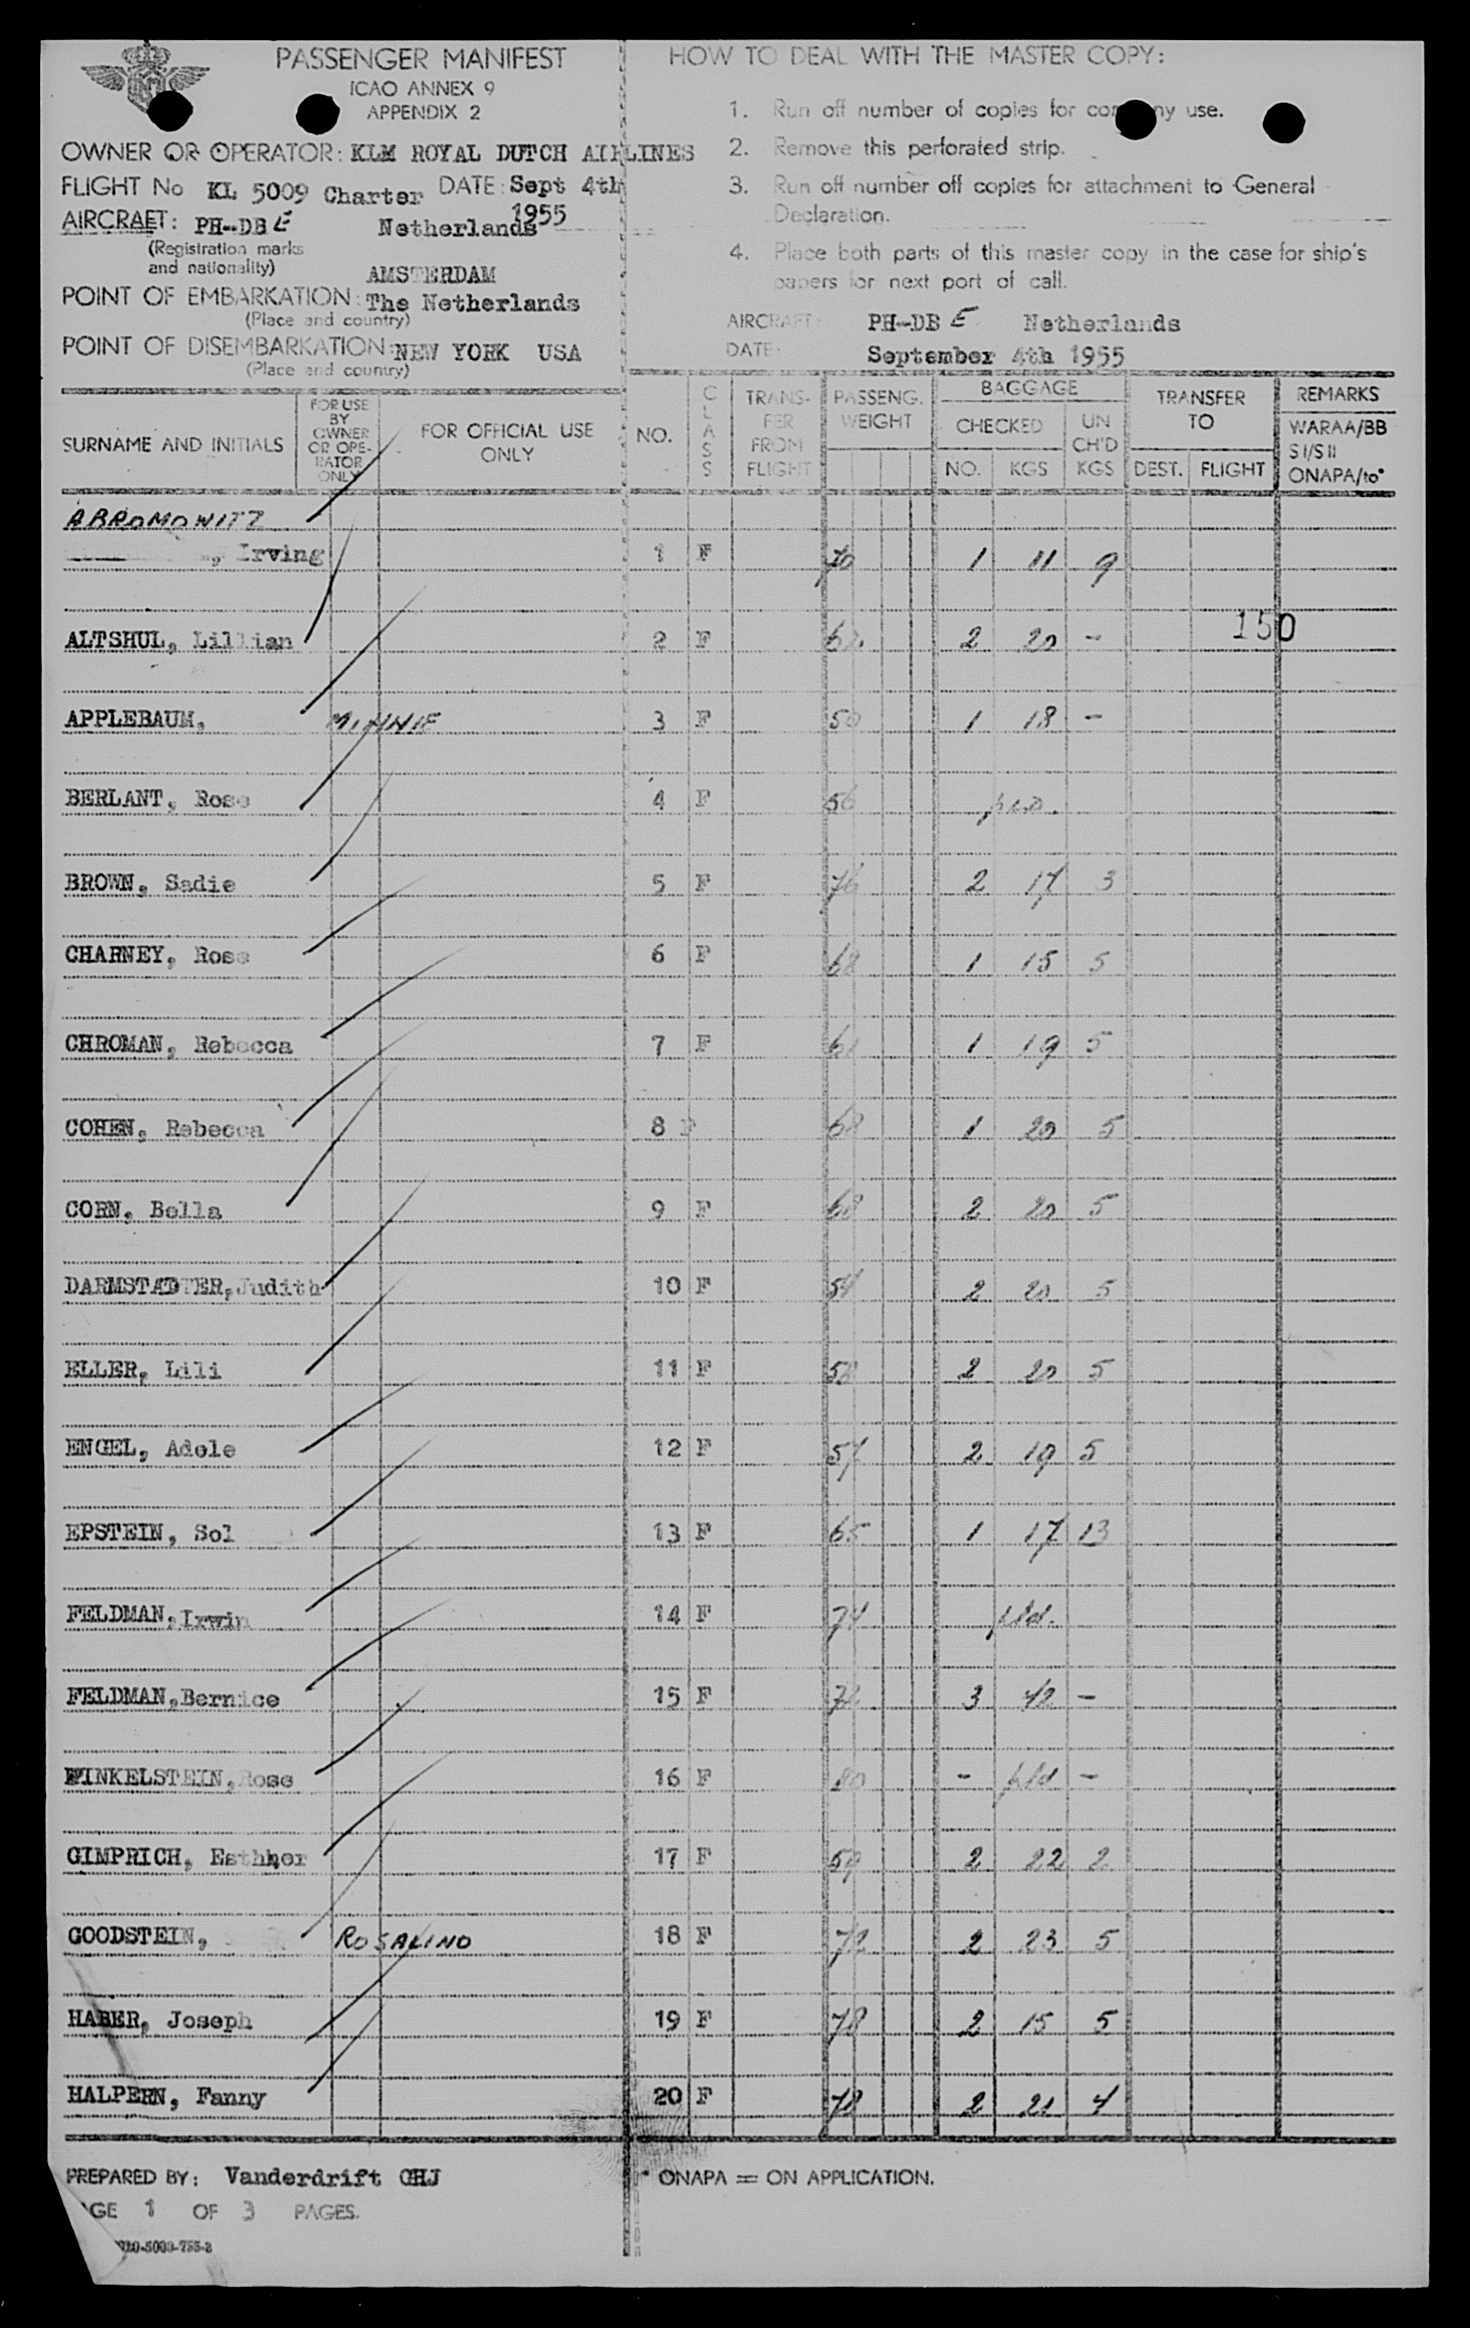 PASSENGER MANIFEST
ICAO ANNEX 9
APPENDIX 2
OWNER OR OPERATOR: KLM ROYAL DUTCH AIRLINES
FLIGHT No KL 5009 Charter DATE: Sept 4th
1955
AIRCRAFT: PH--DB E Netherlands
(Registration marks
and nationality)
AMSTERDAM
POINT OF EMBARKATION: The Netherlands
(Place and country)
POINT OF DISEMBARKATION: NEW YORK USA
(Place and country)
HOW TO DEAL WITH THE MASTER COPY:
1. Run off number of copies for company use.
2. Remove this perforated strip.
3. Run off number off copies for attachment to General
Declaration.
4. Place both parts of this master copy in the case for ship's
papers for next port of call.
AIRCRAFT: PH--DB E Netherlands
DATE: September 4th 1955
SURNAME AND INITIALS FOR USE BY OWNER OR OPE-RATOR ONLY FOR OFFICIAL USE ONLY NO. CLASS TRANS-FER FROM FLIGHT PASSENG. WEIGHT BAGGAGE CHECKED NO. KGS UN CH'D KGS TRANSFER TO DEST. FLIGHT REMARKS WARAA/BB S I/S II ONAPA/to*
ABROMOWITZ
, Irving 1 F 70 1 11 9
150
ALTSHUL, Lillian 2 F 2 20 -
APPLEBAUM, MINNIE 3 F 50 1 18 -
BERLANT, Rose 4 F 56
BROWN, Sadie 5 F 76 2 17 3
CHARNEY, Rose 6 F 68 1 15 5
CHROMAN, Rebecca 7 F 61 1 19 5
COHEN, Rebecca 8 F 68 1 20 5
CORN, Bella 9 F 68 2 20 5
DARMSTADTER, Judith 10 F 54 2 20 5
ELLER, Lili 11 F 58 2 20 5
ENGEL, Adele 12 F 57 2 19 5
EPSTEIN, Sol 13 F 65 1 17 13
FELDMAN, Irwin 14 F 74 pld.
FELDMAN, Bernice 15 F 3 42 -
FINKELSTEIN, Rose 16 F 80 - pld -
GIMPRICH, Esthher 17 F 59 2 22 2
GOODSTEIN, ROSALIND 18 F 72 2 23 5
HABER, Joseph 19 F 78 2 15 5
HALPERN, Fanny 20 F 78 2 21 4
PREPARED BY: Vanderdrift CHJ
* ONAPA = ON APPLICATION.
PAGE 1 OF 3 PAGES.